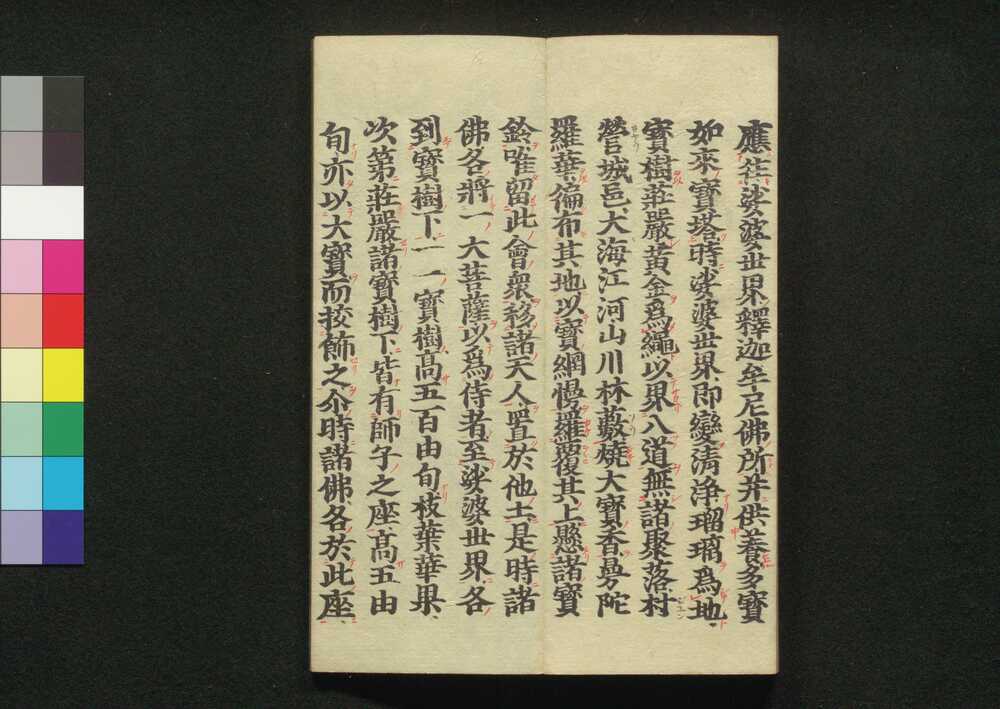 應往娑婆世界釋迦牟尼佛所并供養多寶
如來寶塔時娑婆世界即變清淨瑠璃爲地
寶樹莊嚴黃金爲繩以界八道無諸聚落村
營城邑大海江河山川林藪燒大寶香曼陀
羅華徧布其地以寶網幔羅覆其上懸諸寶
鈴唯留此會衆移諸天人置於他土是時諸
佛各將一大菩薩以爲侍者至娑婆世界各
到寶樹下一一寶樹高五百由旬枝葉華果
次第莊嚴諸寶樹下皆有師子之座高五由
旬亦以大寶而挍飾之尒時諸佛各於此座